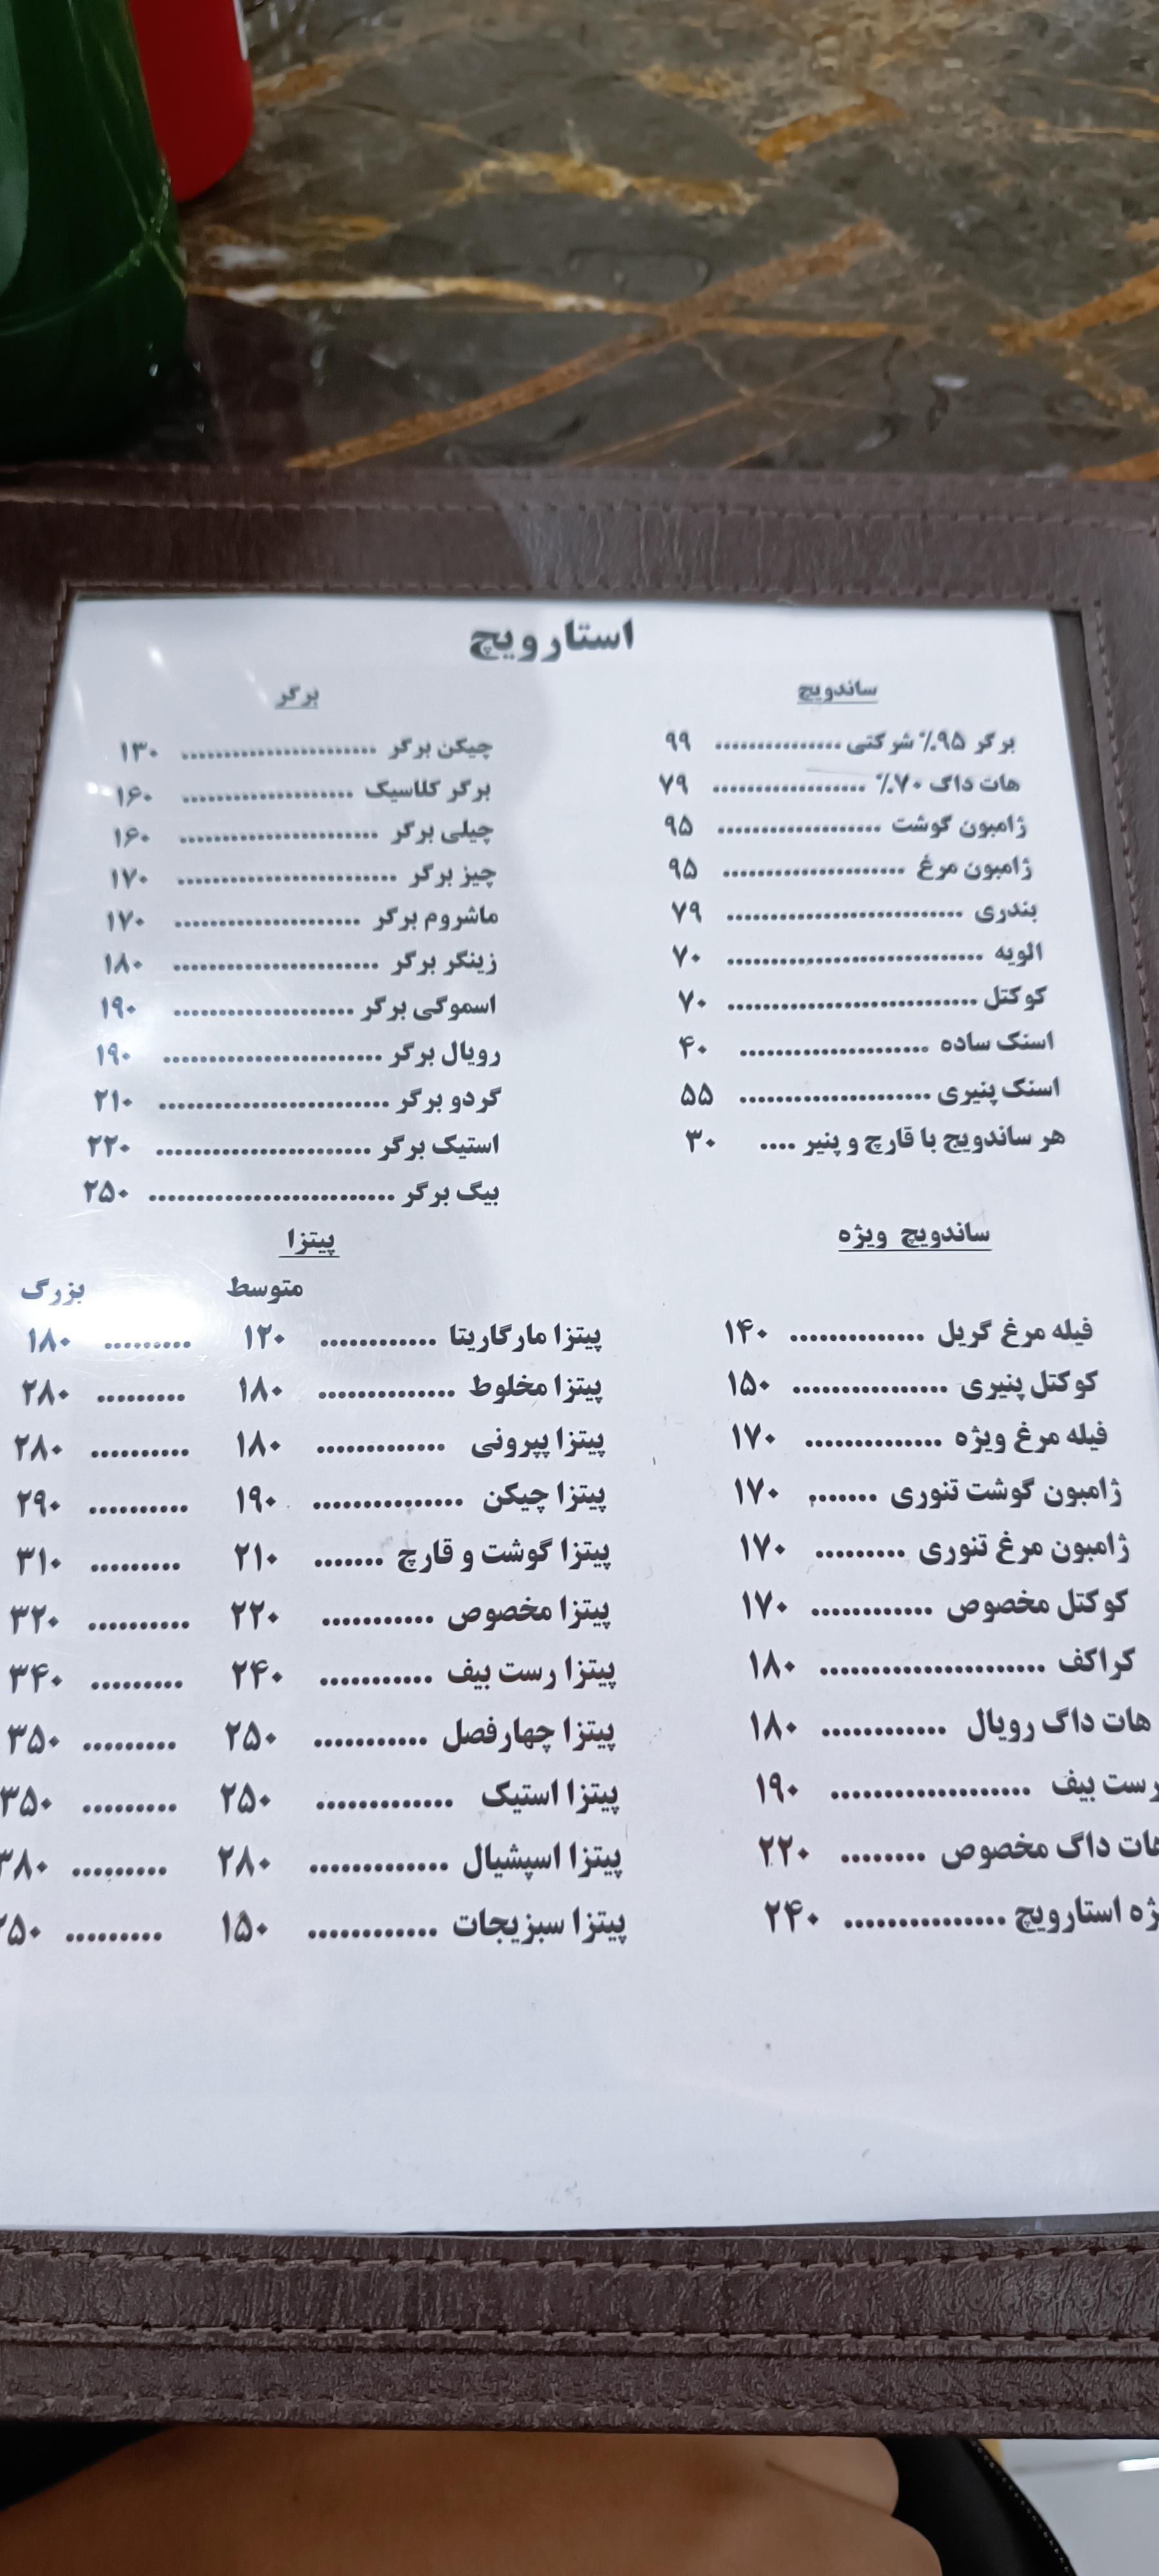 استارویچ
ساندویچ
برگر ۹۵٪ شرکتی ............... ۹۹
هات داگ ۷۰٪ .................. ۷۹
ژامبون گوشت ................... ۹۵
ژامبون مرغ ..................... ۹۵
بندری ........................... ۷۹
الویه ............................. ۷۰
کوکتل ............................ ۷۰
اسنک ساده ...................... ۴۰
اسنک پنیری ...................... ۵۵
هر ساندویچ با قارچ و پنیر .... ۳۰
برگر
چیکن برگر ....................... ۱۳۰
برگر کلاسیک .................... ۱۶۰
چیلی برگر ........................ ۱۶۰
چیز برگر .......................... ۱۷۰
ماشروم برگر ...................... ۱۷۰
زینگر برگر ........................ ۱۸۰
اسموگی برگر .................... ۱۹۰
رویال برگر ........................ ۱۹۰
گردو برگر ......................... ۲۱۰
استیک برگر ........................ ۲۲۰
بیگ برگر ........................... ۲۵۰
ساندویچ ویژه
فیله مرغ گریل .............. ۱۴۰
کوکتل پنیری ................ ۱۵۰
فیله مرغ ویژه .............. ۱۷۰
ژامبون گوشت تنوری ....... ۱۷۰
ژامبون مرغ تنوری ......... ۱۷۰
کوکتل مخصوص ............ ۱۷۰
کراکف ...................... ۱۸۰
هات داگ رویال ............ ۱۸۰
رست بیف ................... ۱۹۰
هات داگ مخصوص ........ ۲۲۰
استارویچ ............... ۲۴۰
پیتزا
متوسط بزرگ
پیتزا مارگاریتا ............ ۱۲۰ ......... ۱۸۰
پیتزا مخلوط .............. ۱۸۰ ......... ۲۸۰
پیتزا پپرونی ............. ۱۸۰ .......... ۲۸۰
پیتزا چیکن ............... ۱۹۰ .......... ۲۹۰
پیتزا گوشت و قارچ ....... ۲۱۰ ......... ۳۱۰
پیتزا مخصوص ........... ۲۲۰ .......... ۳۲۰
پیتزا رست بیف ........... ۲۴۰ ......... ۳۴۰
پیتزا چهارفصل ........... ۲۵۰ ......... ۳۵۰
پیتزا استیک ............. ۲۵۰ ......... ۳۵۰
پیتزا اسپشیال ............. ۲۸۰ ......... ۳۸۰
پیتزا سبزیجات ............ ۱۵۰ .........